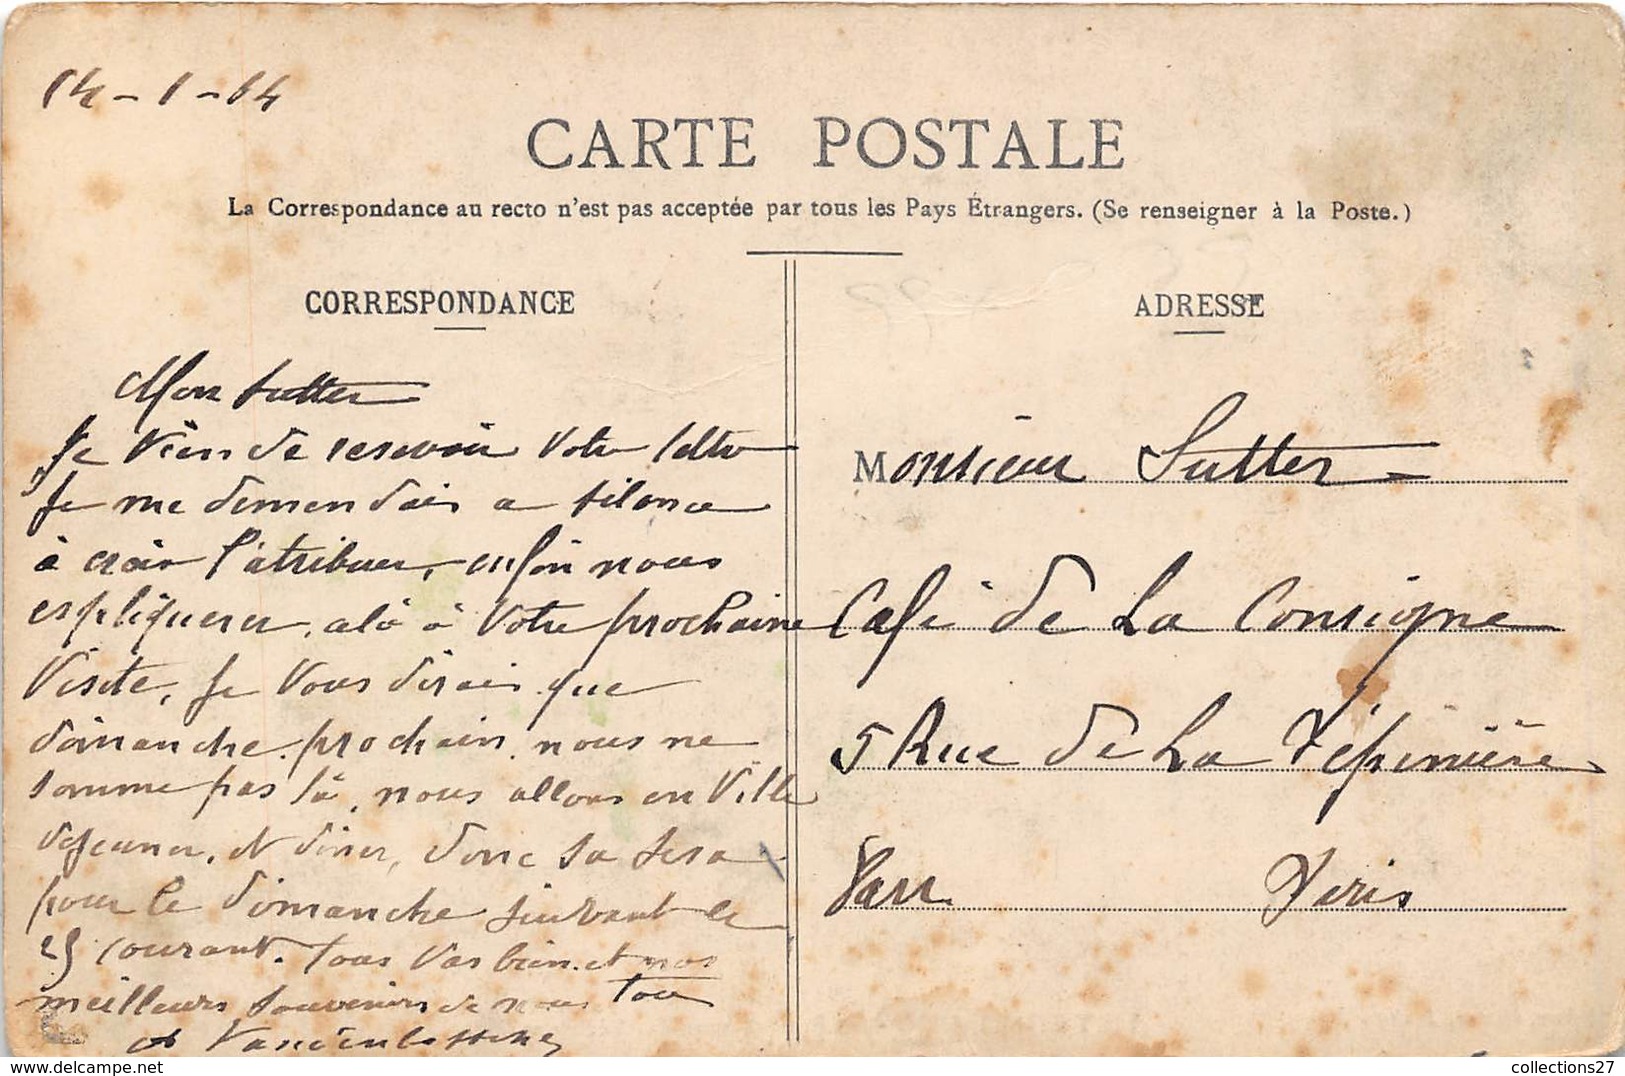 14-1-14
CARTE POSTALE
La Correspondance au recto n'est pas acceptée par tous les Pays Étrangers. (Se renseigner à la Poste.)
CORRESPONDANCE
Mon Sutter
Je vien de resevoir votre lettre
Je me demendais a silance
à croir l'atribuer, enfin nous
espliquerer, alò à votre prochaine
visite, Je vous dirai que
dimanche prochain nous ne
somme pas là, nous allons en ville
dejeuner, et diner, donc sa sera
pour le dimanche suivant le
25 courant. tous vas bien et nos
meilleurs souvenirs de nous tous
ADRESSE
Monsieur Sutter
Café de La Consigne
5 Rue de La Pépinière
Paris
collections27